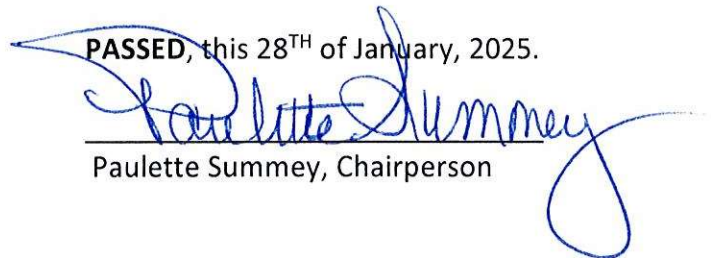 PASSED, this 28TH of January, 2025.
Paulette Summey
Paulette Summey, Chairperson